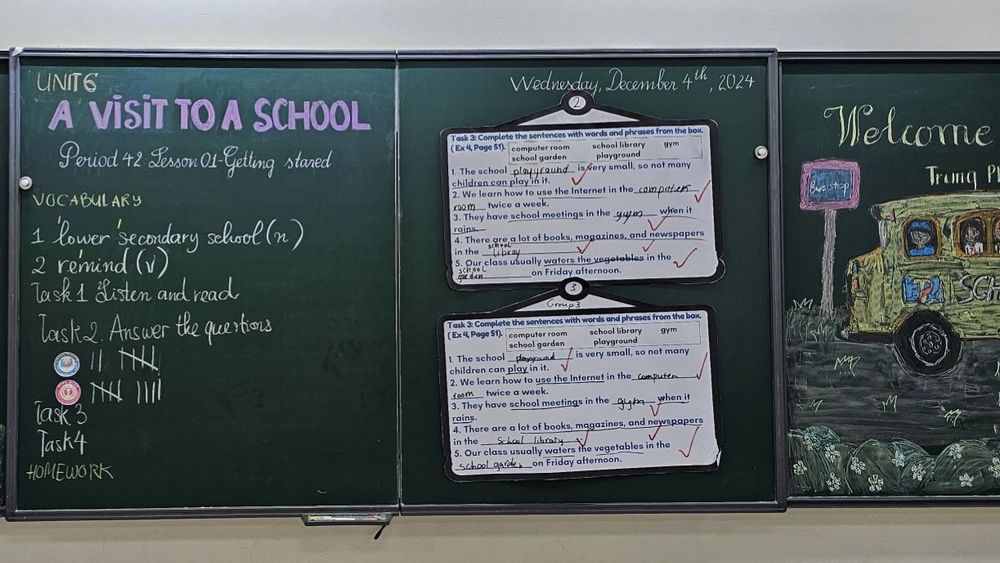 UNIT 6
A VISIT TO A SCHOOL
Period 42 Lesson 01-Getting stared
VOCABULARY
1 lower secondary school (n)
2 remind (v)
Task 1 Listen and read
Task 2. Answer the questions
Task 3
Task4
HOMEWORK
Wednesday, December 4th, 2024
2
Task 3: Complete the sentences with words and phrases from the box.
( Ex 4, Page 51).
computer room school library gym
school garden playground
1. The school playground is very small, so not many
children can play in it.
2. We learn how to use the Internet in the computer
room twice a week.
3. They have school meetings in the gym when it
rains.
4. There are a lot of books, magazines, and newspapers
in the school library
5. Our class usually waters the vegetables in the
school garden on Friday afternoon.
3
Group 3
Task 3: Complete the sentences with words and phrases from the box.
( Ex 4, Page 51).
computer room school library gym
school garden playground
1. The school playground is very small, so not many
children can play in it.
2. We learn how to use the Internet in the computer
room twice a week.
3. They have school meetings in the gym when it
rains.
4. There are a lot of books, magazines, and newspapers
in the school library
5. Our class usually waters the vegetables in the
school garden on Friday afternoon.
Welcome
Trung
Bus stop